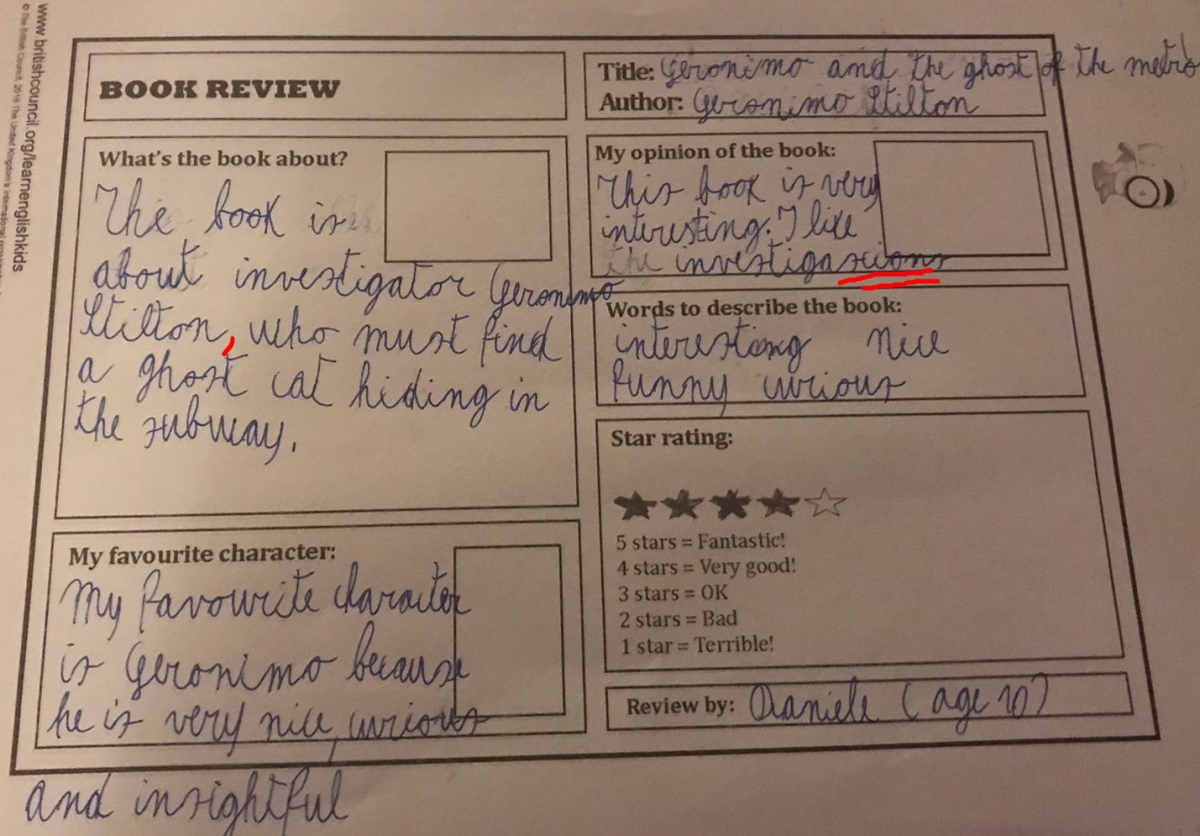 www.britishcouncil.org/learnenglishkids
© The British Council, 2016 The United Kingdom's international
BOOK REVIEW
Title: Geronimo and the ghost of the metro
Author: Geronimo Stilton
What's the book about?
The book is
about investigator Geronimo
Stilton, who must find
a ghost cat hiding in
the subway.
My favourite character:
My favourite character
is Geronimo because
he is very nice, curious
and insightful
My opinion of the book:
This book is very
interesting. I like
the investigascions
Words to describe the book:
interesting nice
funny curious
Star rating:
5 stars = Fantastic!
4 stars = Very good!
3 stars = OK
2 stars = Bad
1 star = Terrible!
Review by: Daniele (age 10)